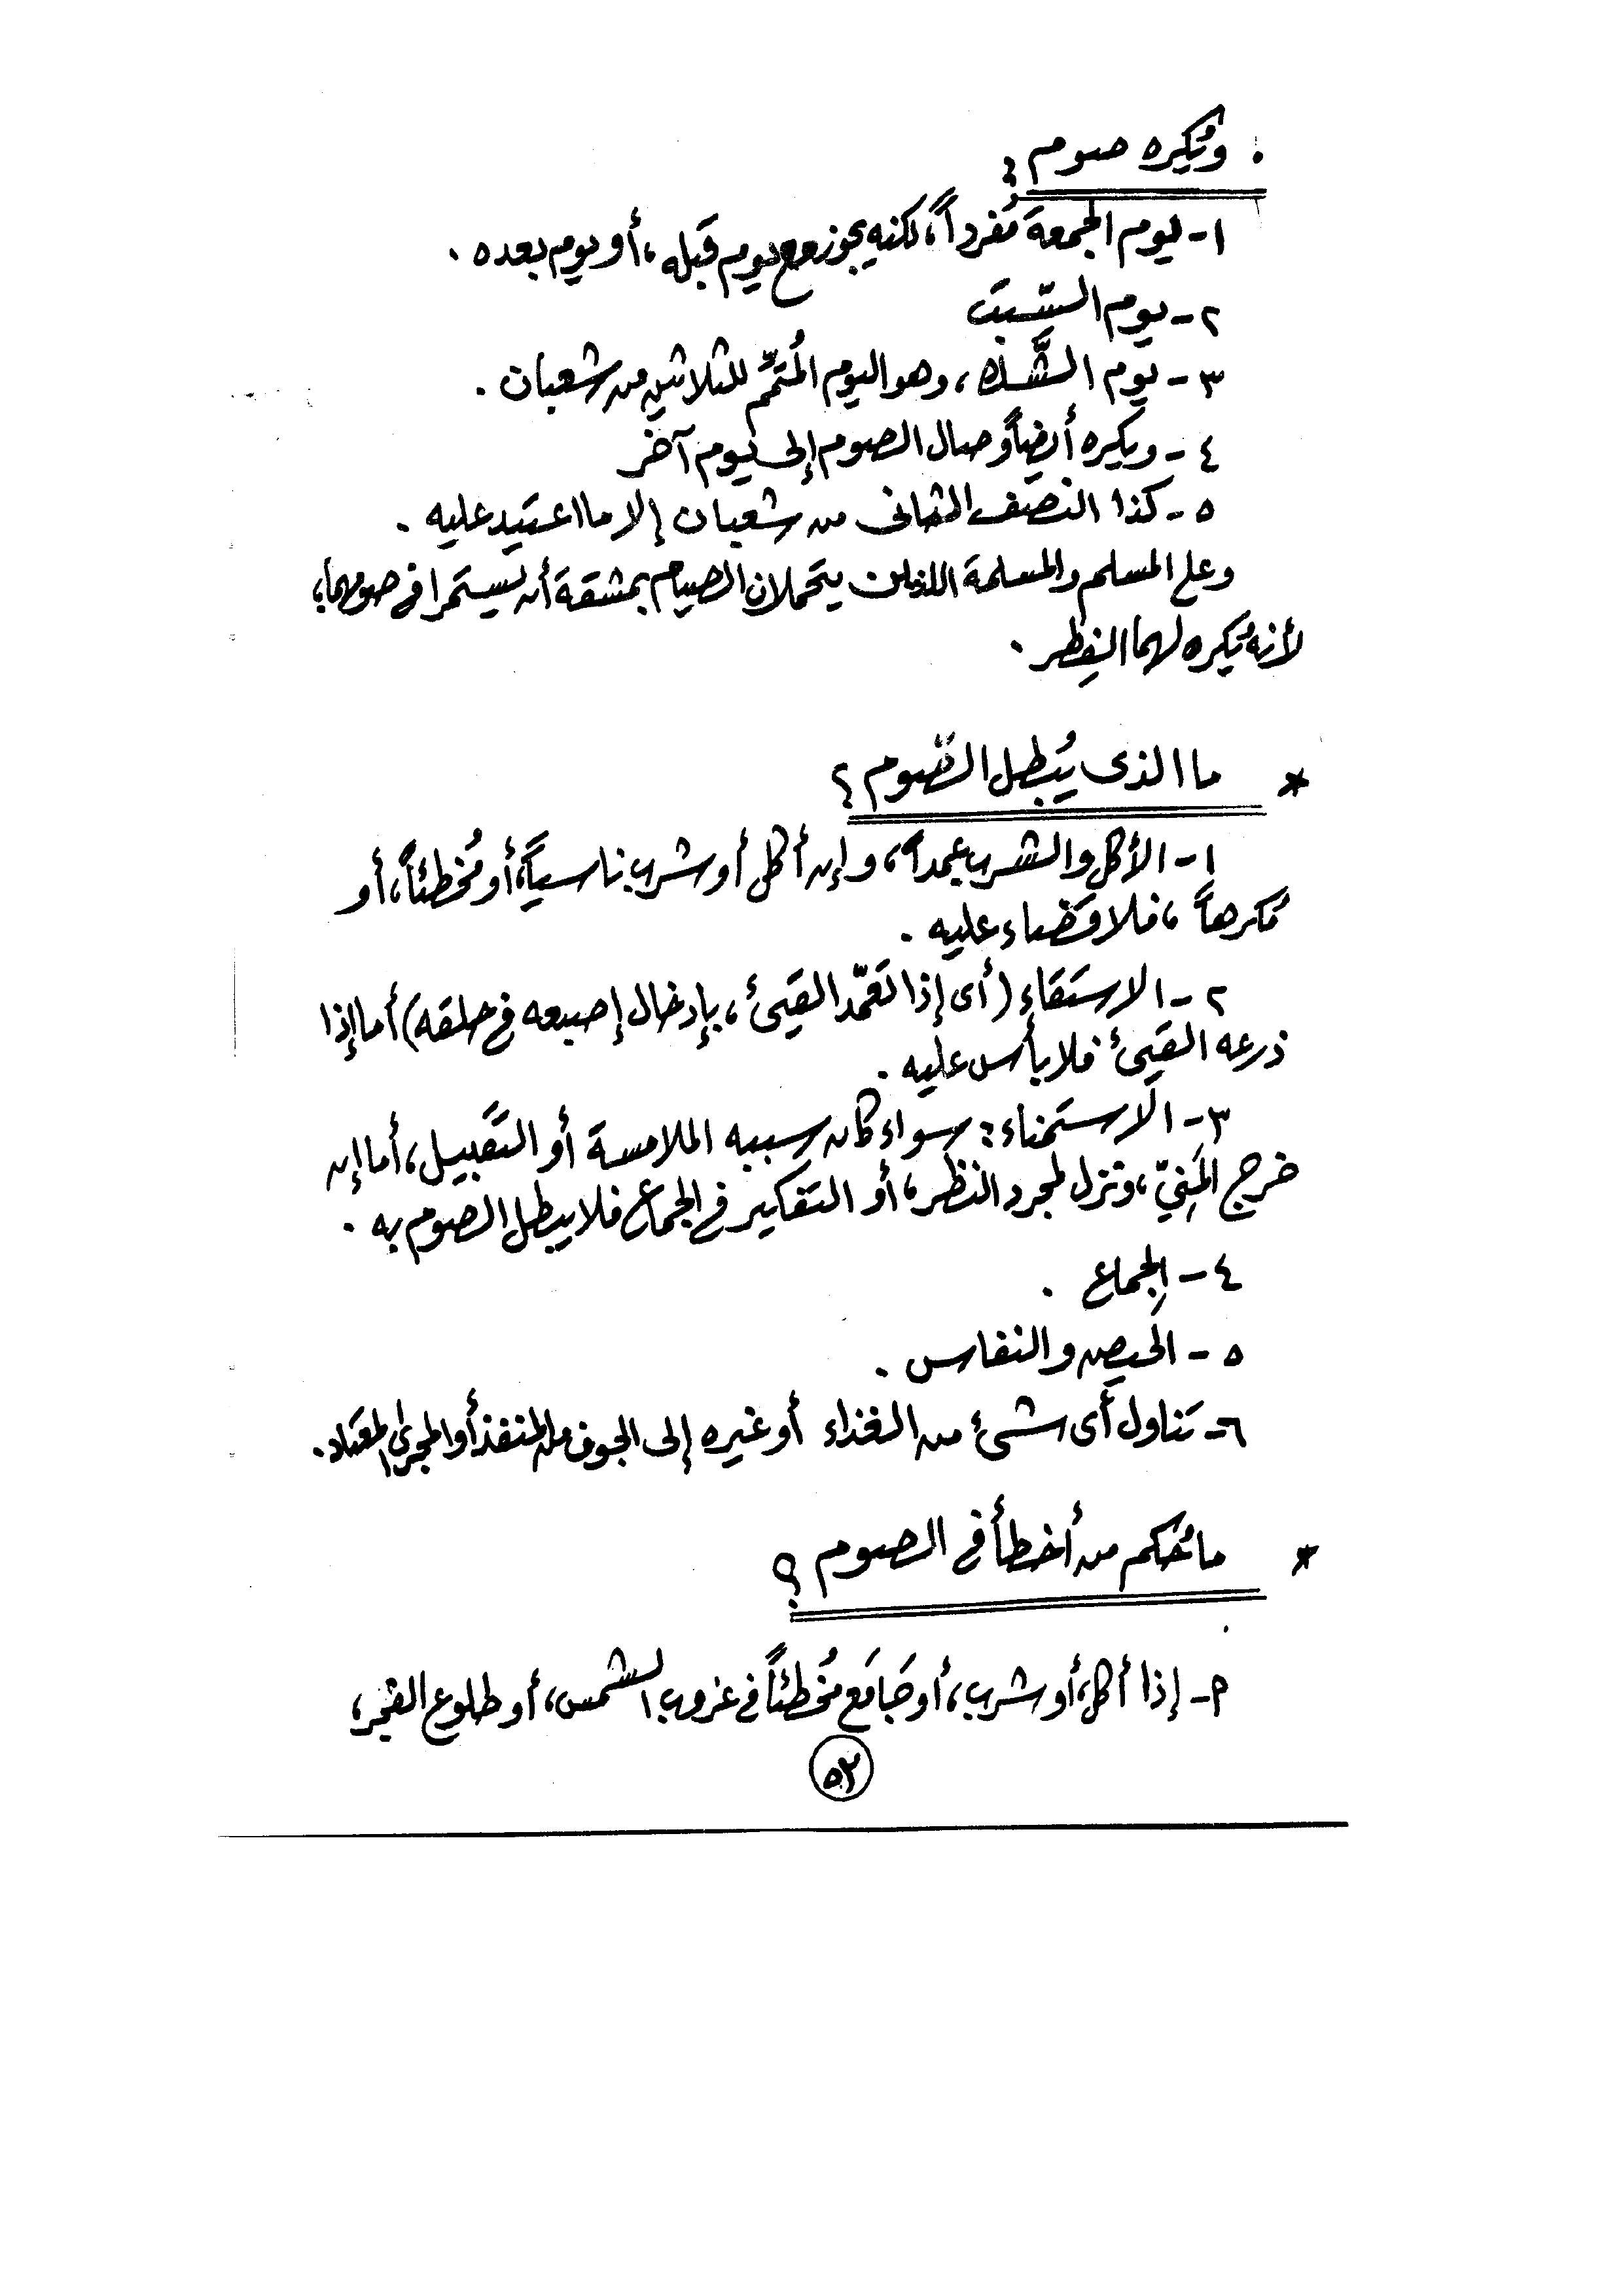 . ويُكره صوم :
١- يوم الجمعة مُفرداً، لكنه يجوز مع يوم قبله، أو يوم بعده .
٢- يوم السَّبت
٣- يوم الشَّك، وهو اليوم المُتمِّم للثلاثين من شعبان .
٤- ويكره أيضاً وصال الصوم إلى يوم آخر
٥- كذا النصف الثانى من شعبان إلا ما اعتيد عليه .
وعلى المسلم والمسلمة اللذين يتحملان الصيام بمشقة أن يستمرا فى صومهما،
لأنه يُكره لهما الفِطر .
* ما الذى يُبطل الصَّوم ؟
١- الأكل والشرب عمداً، وإن أكل أو شرب ناسياً، أو مُخطئاً، أو
مُكرهاً، فلا قضاء عليه .
٢- الاستقاء (أى إذا تعَمَّد القيئ، بإدخال إصبعه فى حلقه) أما إذا
ذرعه القيئ فلا بأس عليه .
٣- الاستمناء: سواء كان سببه الملامسة أو التَّقبيل، أما إن
خرج المَنِيّ، ونزل لمجرد النظر، أو التفكير فى الجماع فلا يبطل الصوم به .
٤- الجِماع .
٥- الحيض والنفاس .
٦- تناول أى شئ من الغذاء أو غيره إلى الجوف من المنفذ أو المجرى المعتاد .
* ما حُكم من أخطأ فى الصوم ؟
٢- إذا أكل، أو شرب، أو جَامَع مُخطئاً فى غروب الشمس، أو طلوع الفجر،
٥٢